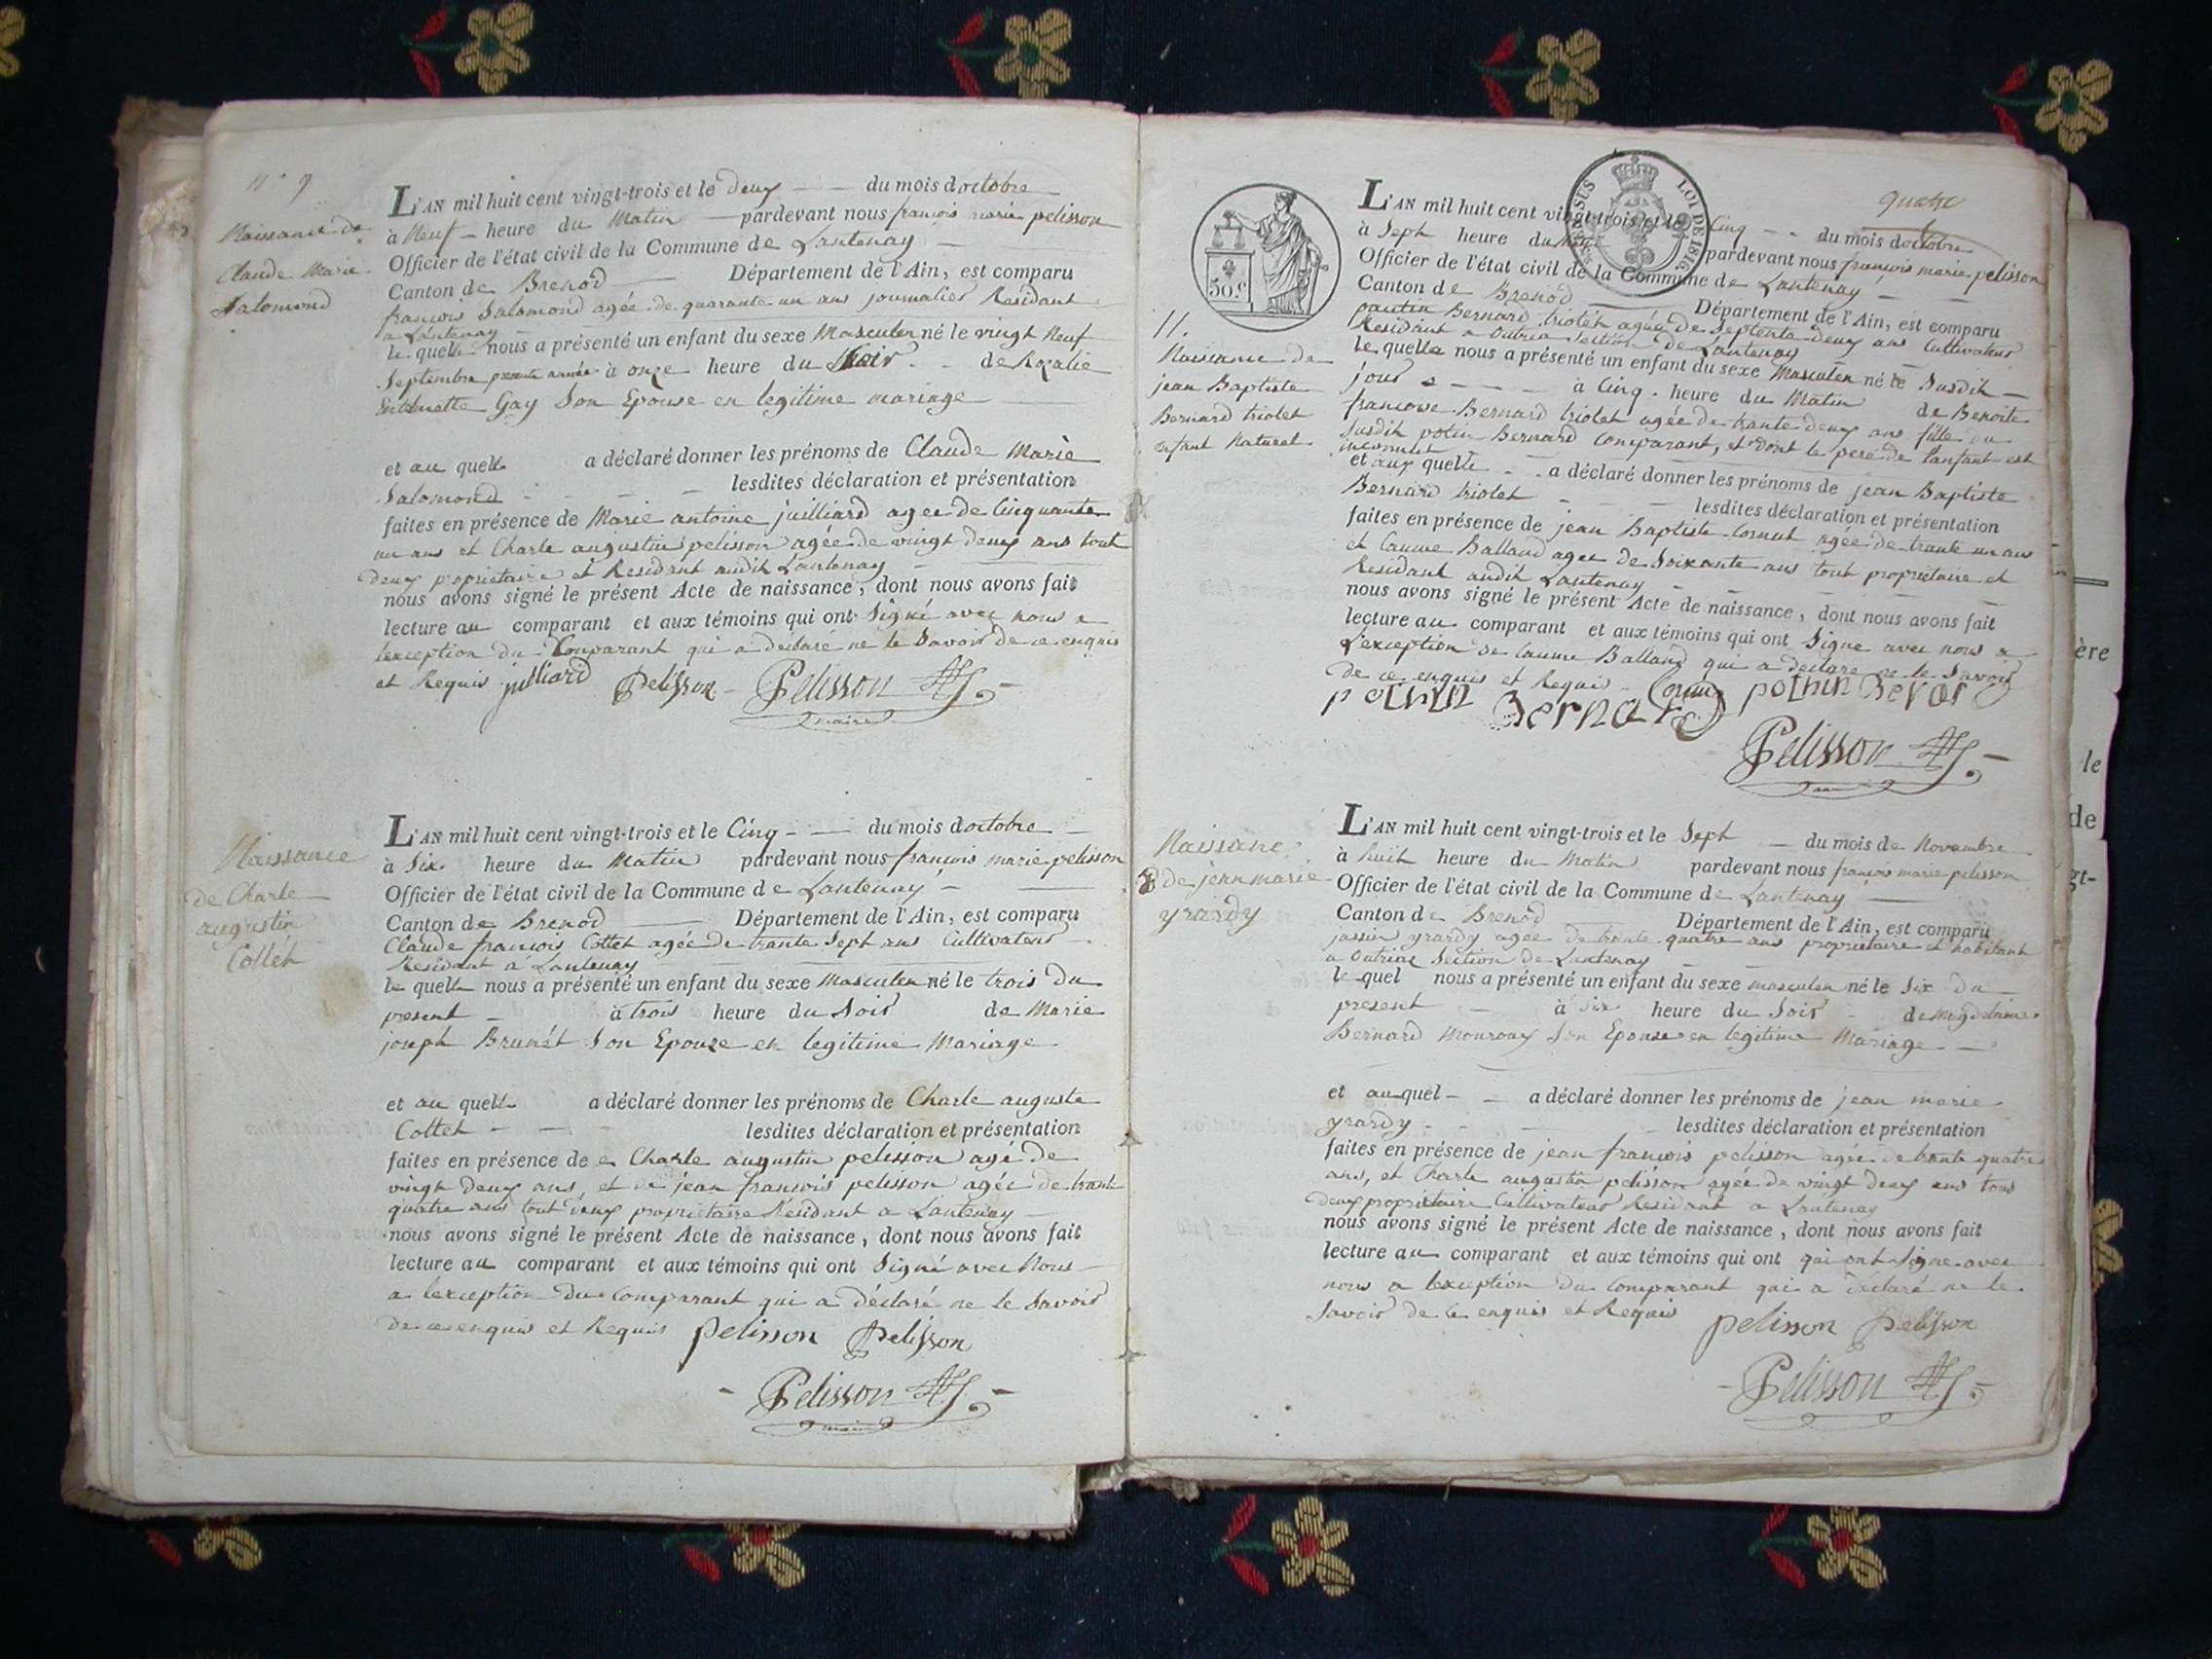 N° 9
Naissance de
Claude Marie
Salomond
L'AN mil huit cent vingt-trois et le deux du mois doctobre
à Neuf heure du Matin pardevant nous françois marie pelisson
Officier de l'état civil de la Commune de Lantenay
Canton de Brenod Département de l'Ain, est comparu
françois Salomond agée de quarante un ans journalier Residant
a Lantenay
le quelle nous a présenté un enfant du sexe Masculen né le vingt Neuf
Septembre presente année à onze heure du Soir de Rozalie
Gay Son Epouse en legitime mariage
et au quelle a déclaré donner les prénoms de Claude Marie
Salomond lesdites déclaration et présentation
faites en présence de Marie antoine juilliard agee de Cinquante
un ans et Charle augustin pelisson agée de vingt deux ans tout
deux proprietaire et Residant audit Lantenay
nous avons signé le présent Acte de naissance, dont nous avons fait
lecture au comparant et aux témoins qui ont Signé avec nous a
lexception du Comparant qui a declaré ne le Savoir de ce enquis
et Requis julliard pelisson Pelisson
maire
Naissance
de Charle
augustin
Collet
L'AN mil huit cent vingt-trois et le Cinq du mois doctobre
à Six heure du Matin pardevant nous françois marie pelisson
Officier de l'état civil de la Commune de Lantenay
Canton de Brenod Département de l'Ain, est comparu
Claude françois Cottet agée de trante Sept ans Cultivateur
Residant a Lantenay
le quelle nous a présenté un enfant du sexe Masculen né le trois du
present à trois heure du Soir de Marie
joseph Brunét Son Epouze en legitime Mariage
et au quelle a déclaré donner les prénoms de Charle auguste
Cottet lesdites déclaration et présentation
faites en présence de Charle augustin pelisson agé de
vingt deux ans, et de jéan françois pelisson agée de trante
quatre ans tout deux proprietaire Résidant a Lantenay
nous avons signé le présent Acte de naissance, dont nous avons fait
lecture au comparant et aux témoins qui ont Signé avec Nous
a lexception du Comparant qui a déclaré ne le Savoir
de ce enquis et Requis pelisson pelisson
Pelisson
maire
50.c
SUS LOI DE 1816
quatre
11.
Naissance de
jean Baptiste
Bernard triolet
enfant Naturel
L'AN mil huit cent vingt-trois et le Cinq du mois doctobre
à Sept heure du pardevant nous françois marie pelisson
Officier de l'état civil de la Commune de Lantenay
Canton de Brenod Département de l'Ain, est comparu
Bernard triolet agée de Septente deux ans Cultivateur
Residant a outria Section de Lantenay
le quelle nous a présenté un enfant du sexe Masculen né le Susdit
jour à Cinq heure du Matin de Benoite
francoise Bernard triolet agée de trante deux ans fille du
Susdit potin Bernard Comparant, et dont le pere de l'anfant est
inconnut
et aux quelle a déclaré donner les prénoms de jean Baptiste
Bernard triolet lesdites déclaration et présentation
faites en présence de jean Baptiste Cornut agée de trante un ans
et Caume Balland agee de Soixante ans tout proprietaire et
Residant audit Lantenay
nous avons signé le présent Acte de naissance, dont nous avons fait
lecture au comparant et aux témoins qui ont Signe avec nous a
L'exception de Caume Balland qui a declare ne le Savoir
de ce enquis et Requis pothin
pothin Bernard
Pelisson
Naissance
de jean marie
yrardy
L'AN mil huit cent vingt-trois et le Sept du mois de Novembre
à huit heure du Matin pardevant nous françois marie pelisson
Officier de l'état civil de la Commune de Lantenay
Canton de Brenod Département de l'Ain, est comparu
yrardy agée de trante quatre ans proprietaire et habitant
a outriac Section de Lantenay
le quel nous a présenté un enfant du sexe masculen né le Six du
present à Six heure du Soir de
Bernard Mouroux Son Epouse en legitime Mariage
et au quel a déclaré donner les prénoms de jean marie
yrardy lesdites déclaration et présentation
faites en présence de jean françois pelisson agée de trante quatre
ans, et Charle augustin pelisson agée de vingt deux ans tous
deux proprietaire Cultivateur Residant a Lantenay
nous avons signé le présent Acte de naissance, dont nous avons fait
lecture au comparant et aux témoins qui ont qui ont Signe avec
nous a lexception du Comparant qui a déclaré ne le
Savoir de Ce enquis et Requis pelisson pelisson
Pelisson
ère
le
de
gt-